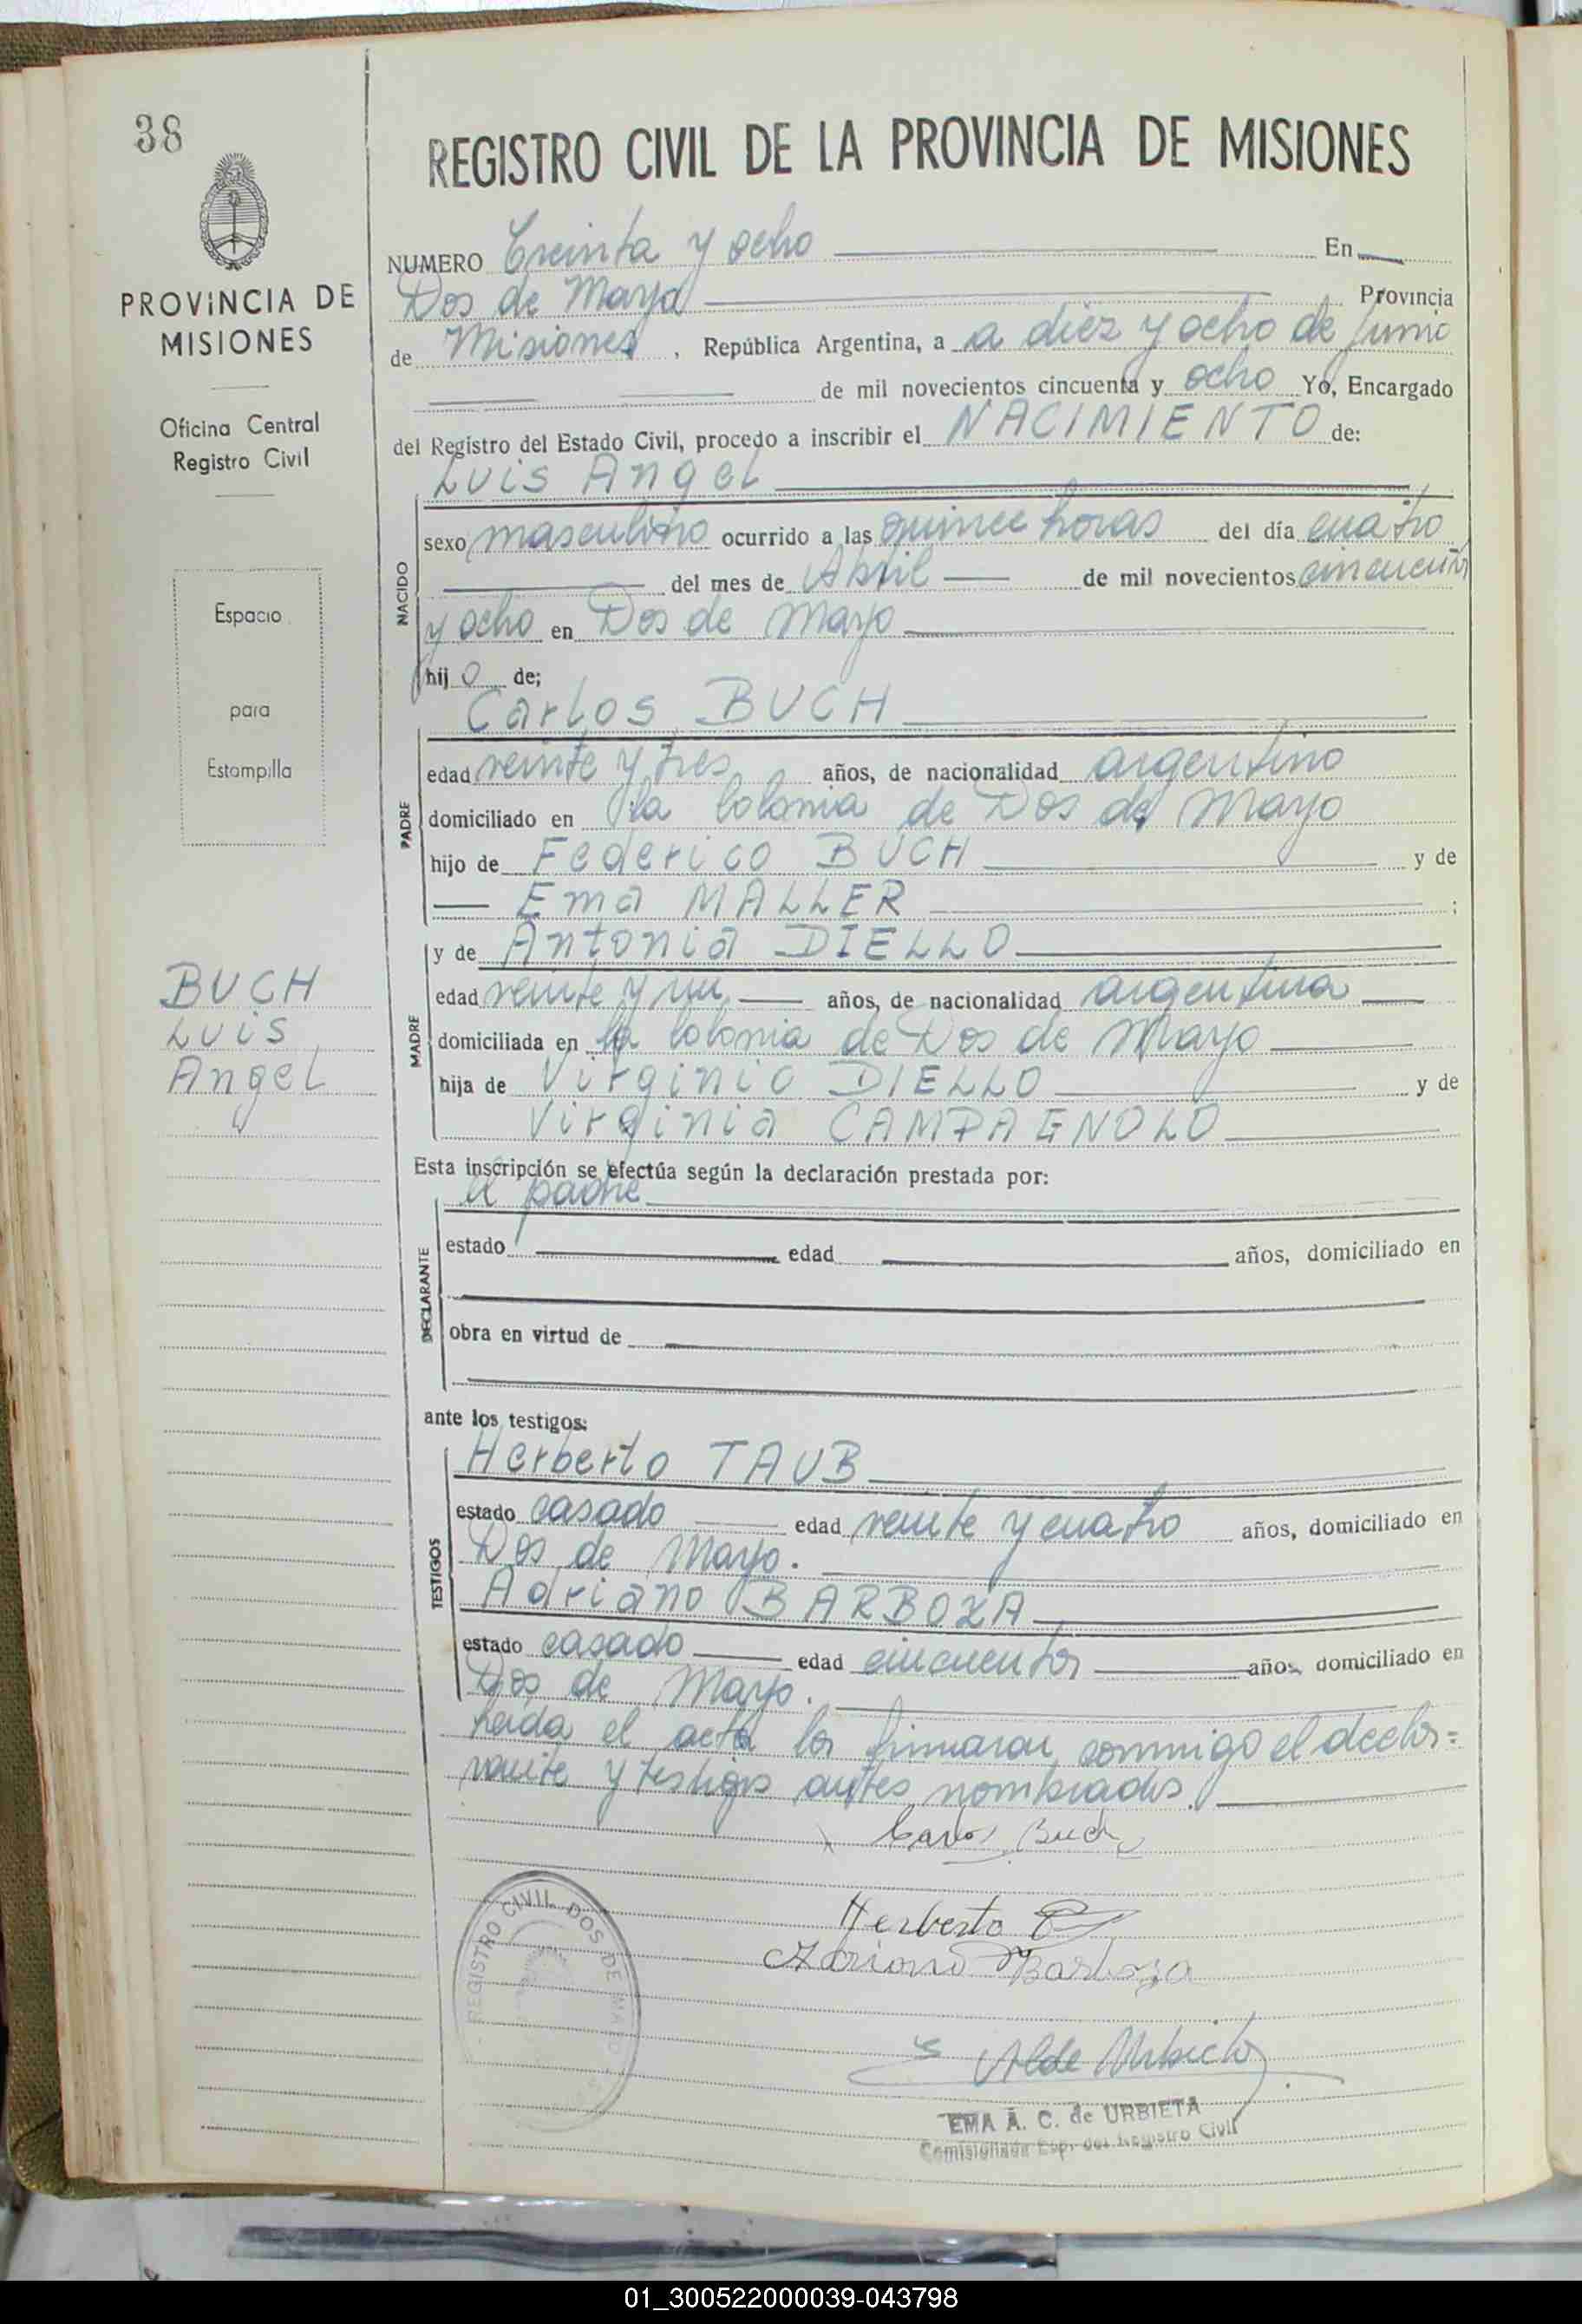 38
REGISTRO CIVIL DE LA PROVINCIA DE MISIONES
PROVINCIA DE
MISIONES
Oficina Central
Registro Civil
Espacio
para
Estampilla
BUCH
Luis
Angel
NUMERO Treinta y ocho En
Dos de Mayo Provincia
de Misiones, República Argentina, a a diez y ocho de Junio
de mil novecientos cincuenta y ocho Yo, Encargado
del Registro del Estado Civil, procedo a inscribir el NACIMIENTO de:
Luis Angel
NACIDO
sexo masculino ocurrido a las quince horas del día cuatro
del mes de Abril de mil novecientos cincuenta
y ocho en Dos de Mayo
hijo de;
Carlos BUCH
PADRE
edad veinte y tres años, de nacionalidad argentino
domiciliado en la Colonia de Dos de Mayo
hijo de Federico BUCH y de
Ema MALLER ;
y de Antonia DIELLO
MADRE
edad veinte y un años, de nacionalidad argentina
domiciliada en la Colonia de Dos de Mayo
hija de Virginio DIELLO y de
Virginia CAMPAGNOLO
Esta inscripción se efectúa según la declaración prestada por:
el padre
DECLARANTE
estado edad años, domiciliado en
obra en virtud de
ante los testigos:
Herberto TAUB
TESTIGOS
estado casado edad veinte y cuatro años, domiciliado en
Dos de Mayo.
Adriano BARBOZA
estado casado edad cincuenta años, domiciliado en
Dos de Mayo.
Leída el acta la firmaron conmigo el decla=
rante y testigos antes nombrados.
Carlos Buch
Herberto
Adriano Barboza
REGISTRO CIVIL DOS DE MAYO
EMA A. C. de URBIETA
Comisionada Esp. del Registro Civil
01_300522000039-043798